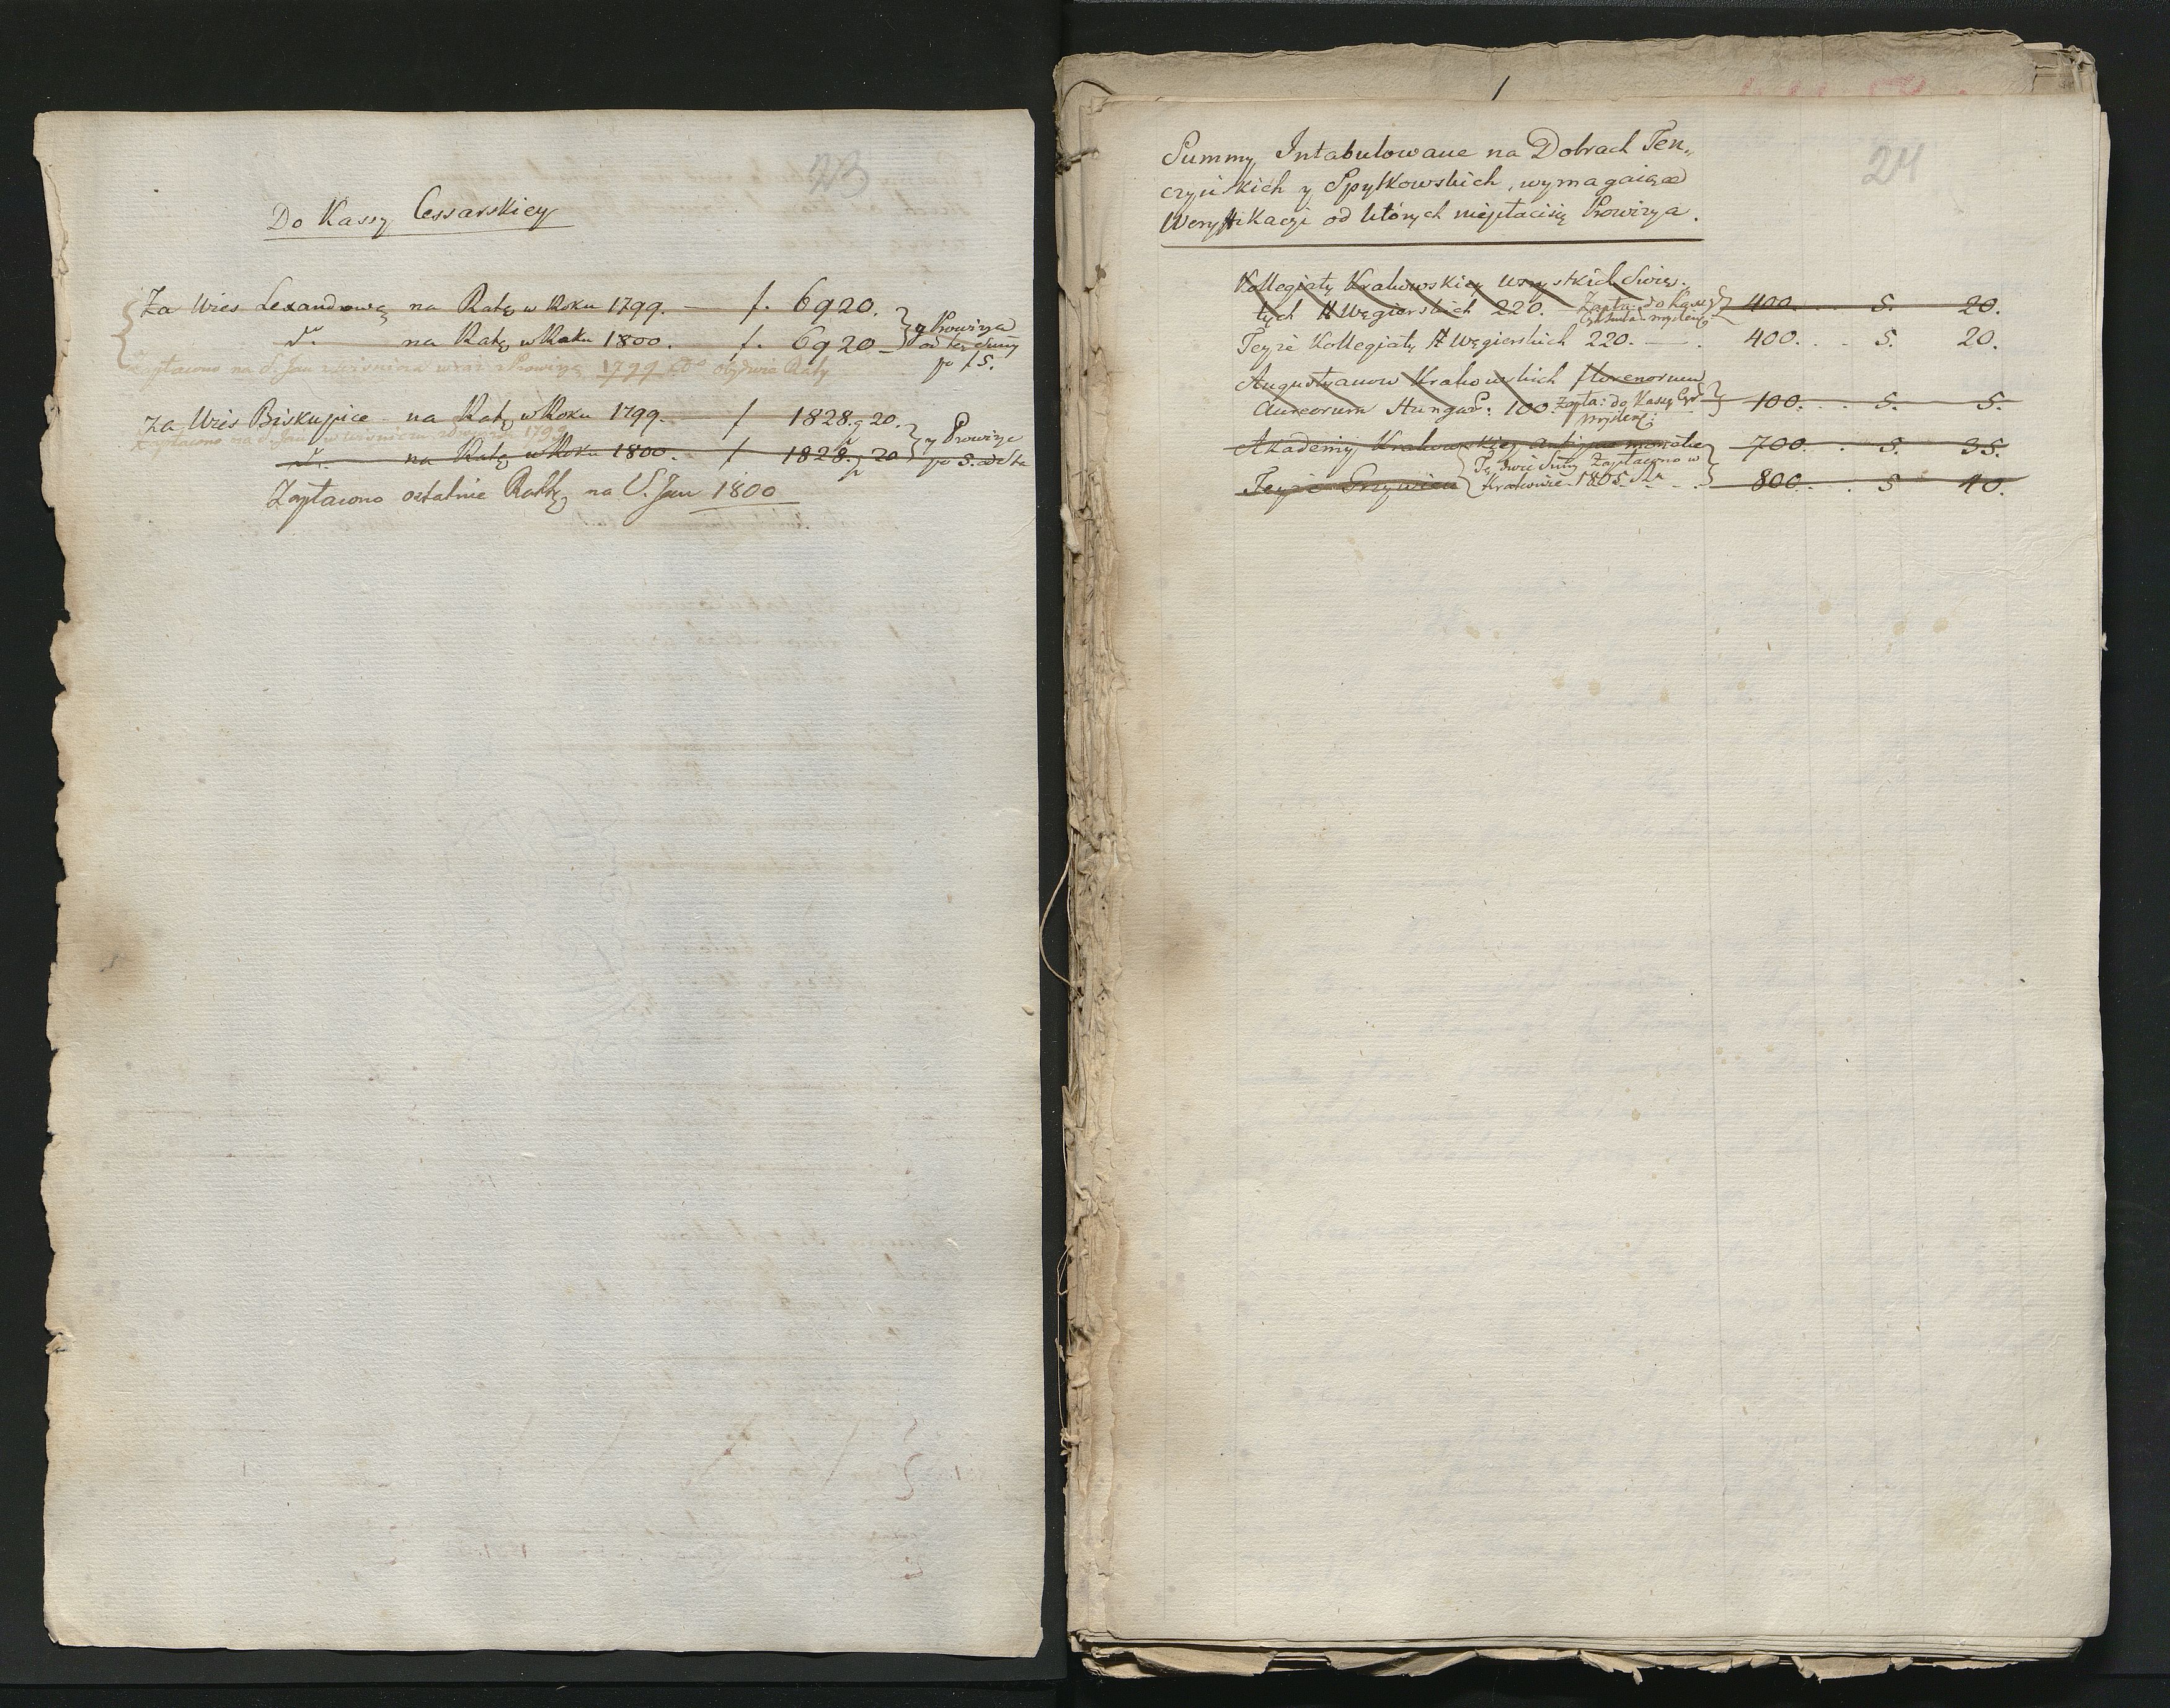 23
Do Kassy Cessarskiey
Za Wies Lexandrowę na Ratę w Roku 1799. — f. 6920. } y Prowizya
dto. na Ratę w Roku 1800. f. 6920 — od tey Summy
po 15.
Zapłacono na S. Jan wraz z Prowizyą 1799 obydwie Raty
Za Wies Biskupice na Ratę w Roku 1799. f 1828. g 20. } y Prowizye
Zapłacono na S. Jan 1799
dto. na Ratę w Roku 1800. f 1828. g 20 po 5. od sta
Zapłacono ostatnie Rattę na S. Jan 1800
1
24
Summy Intabulowane na Dobrach Ten„
czyńskich y Spytkowskich, wymagaiące
Weryfikacyi od których niepłaci się Prowizya.
Kollegiaty Krakowskiey Wszystkich Swię„
tych # Węgierskich 220. Zapła: do Kassy 400. . . 5. 20.
Teyże Kollegiaty # Węgierskich 220. — . 400. . . 5. 20.
Augustyanow Krakowskich florenorum
Aureorum Hungar: 100. Zapła: do Kassy 100. . . 5. 5.
Akademij Krakowskiey 700. . . 5. 35.
Te dwie Summy Zapłacono w
Teyże Krakowie 1805. 800. . . 5 40.